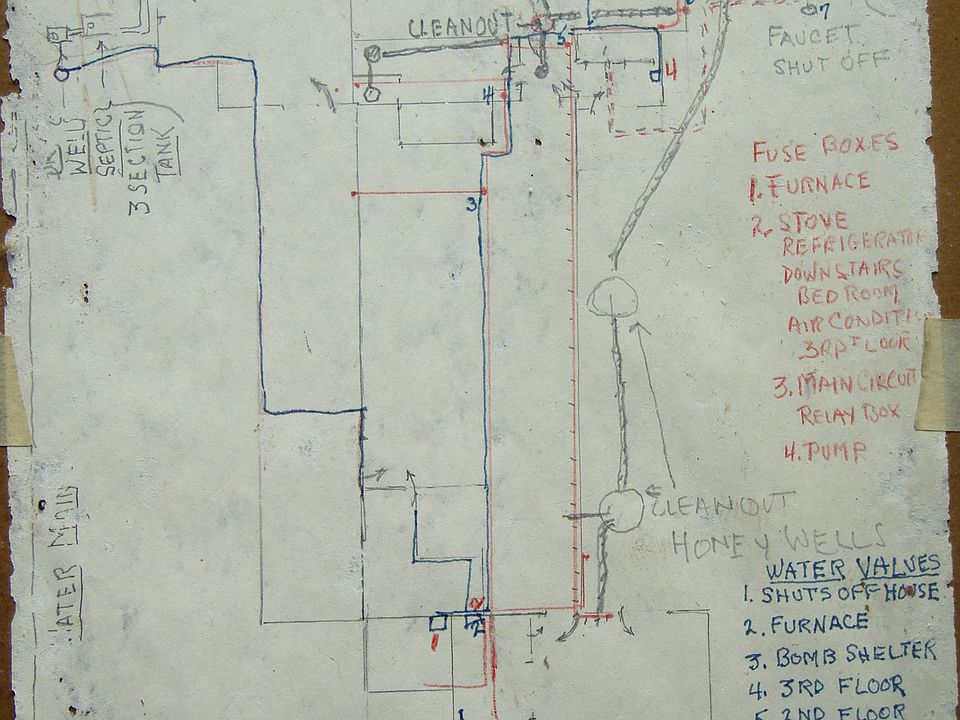 CLEANOUT
7
FAUCET
SHUT OFF
5
4
4
WELL
SEPTIC
3 SECTION
TANK
3
FUSE BOXES
1. FURNACE
2. STOVE
REFRIGERATOR
DOWNSTAIRS
BEDROOM
AIR CONDITI
3RD FLOOR
3. MAIN CIRCUIT
RELAY BOX
4. PUMP
WATER MAIN
CLEANOUT
HONEY WELLS
WATER VALUES
1. SHUTS OFF HOUSE
2. FURNACE
3. BOMB SHELTER
4. 3RD FLOOR
5. 2ND FLOOR
2
1
1